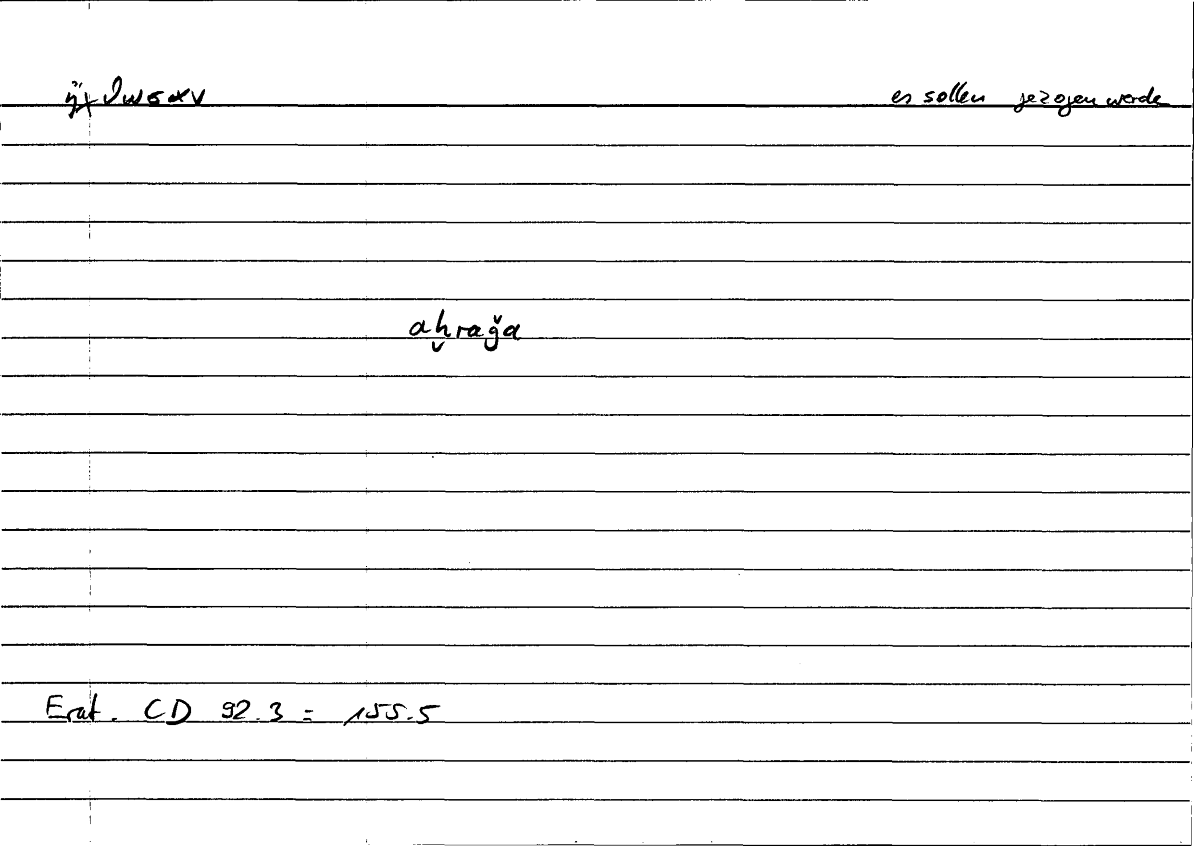 ἤχθωσαν es sollen gezogen werde
aḫraǧa
Erat. CD 92.3 = 155.5